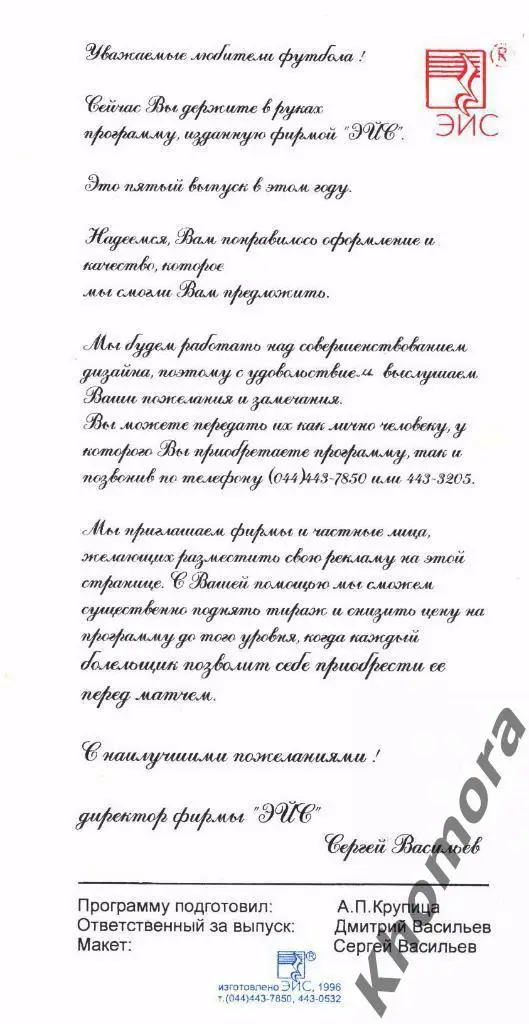 Уважаемые любители футбола !
®
ЭЙС
Сейчас Вы держите в руках
программу, изданную фирмой "ЭЙС".
Это пятый выпуск в этом году.
Надеемся, Вам понравилось оформление и
качество, которое
мы смогли Вам предложить.
Мы будем работать над совершенствованием
дизайна, поэтому с удовольствием выслушаем
Ваши пожелания и замечания.
Вы можете передать их как лично человеку, у
которого Вы приобретаете программу, так и
позвонив по телефону (044)443-7850 или 443-3205.
Мы приглашаем фирмы и частные лица,
желающих разместить свою рекламу на этой
странице. С Вашей помощью мы сможем
существенно поднять тираж и снизить цену на
программу до того уровня, когда каждый
болельщик позволит себе приобрести ее
перед матчем.
С наилучшими пожеланиями !
директор фирмы "ЭЙС"
Сергей Васильев
Программу подготовил: А.П.Крупица
Ответственный за выпуск: Дмитрий Васильев
Макет: Сергей Васильев
®
изготовлено ЭЙС, 1996
т.(044)443-7850, 443-0532
Khomora